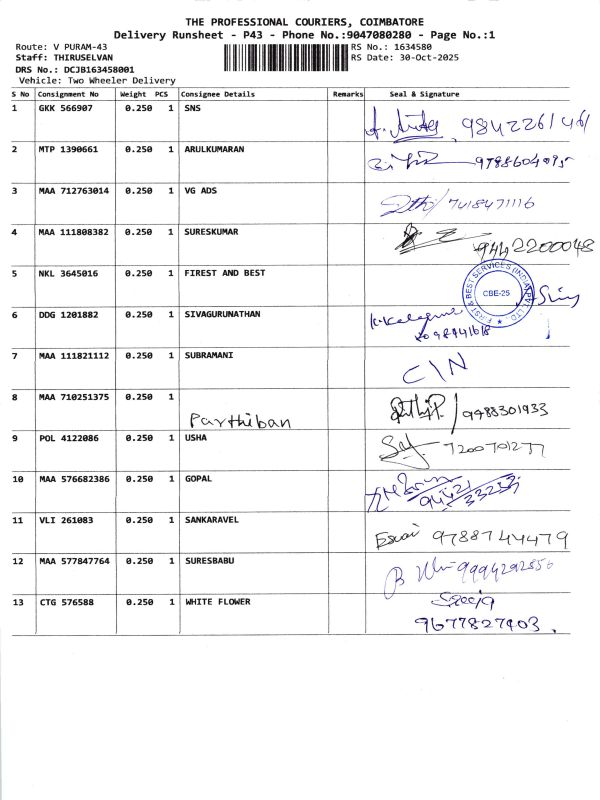 THE PROFESSIONAL COURIERS, COIMBATORE
Delivery Runsheet - P43 - Phone No.:9047080280 - Page No.:1
Route: V PURAM-43 RS No.: 1634580
Staff: THIRUSELVAN RS Date: 30-Oct-2025
DRS No.: DCJB163458001
Vehicle: Two Wheeler Delivery
S No Consignment No Weight PCS Consignee Details Remarks Seal & Signature
1 GKK 566907 0.250 1 SNS
2 MTP 1390661 0.250 1 ARULKUMARAN
3 MAA 712763014 0.250 1 VG ADS 7418471116
4 MAA 111808382 0.250 1 SURESKUMAR 9442200048
5 NKL 3645016 0.250 1 FIREST AND BEST
FIRST & BEST SERVICES (INDIA) PVT. LTD. CBE-25
6 DDG 1201882 0.250 1 SIVAGURUNATHAN
7 MAA 111821112 0.250 1 SUBRAMANI C/N
8 MAA 710251375 0.250 1 Parthiban 9488301933
9 POL 4122086 0.250 1 USHA 7200701277
10 MAA 576682386 0.250 1 GOPAL
11 VLI 261083 0.250 1 SANKARAVEL 9788744479
12 MAA 577847764 0.250 1 SURESBABU 9994292856
13 CTG 576588 0.250 1 WHITE FLOWER
9677827403.